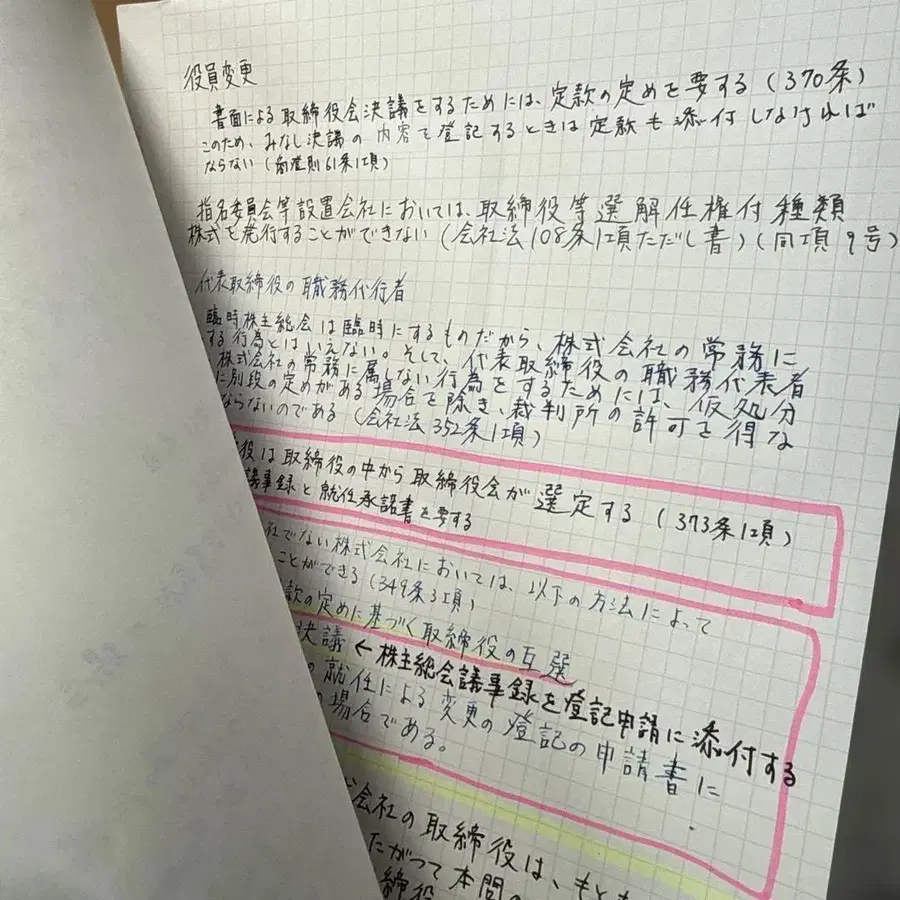 役員変更
書面による取締役会決議をするためには、定款の定めを要する(370条)
このため、みなし決議の内容で登記するときは定款も添付しなければ
ならない(商登則61条1項)
指名委員会等設置会社においては、取締役等選解任権付種類
株式を発行することができない(会社法108条1項ただし書)(同項9号)
代表取締役の職務代行者
臨時株主総会は臨時にするものだから、株式会社の常務に
する行為とはいえない。そして、代表取締役の職務代表者
株式会社の常務に属しない行為をするためには、仮処分
に別段の定めがある場合を除き、裁判所の許可を得な
ならないのである(会社法352条1項)
役は取締役の中から取締役会が選定する(373条1項)
議事録と就任承諾書を要する
社でない株式会社においては、以下の方法によって
ことができる(349条3項)
款の定めに基づく取締役の互選
決議←株主総会議事録を登記申請に添付する
の就任による変更の登記の申請書に
場合である。
会社の取締役は、もとも
たがって本問の
締役